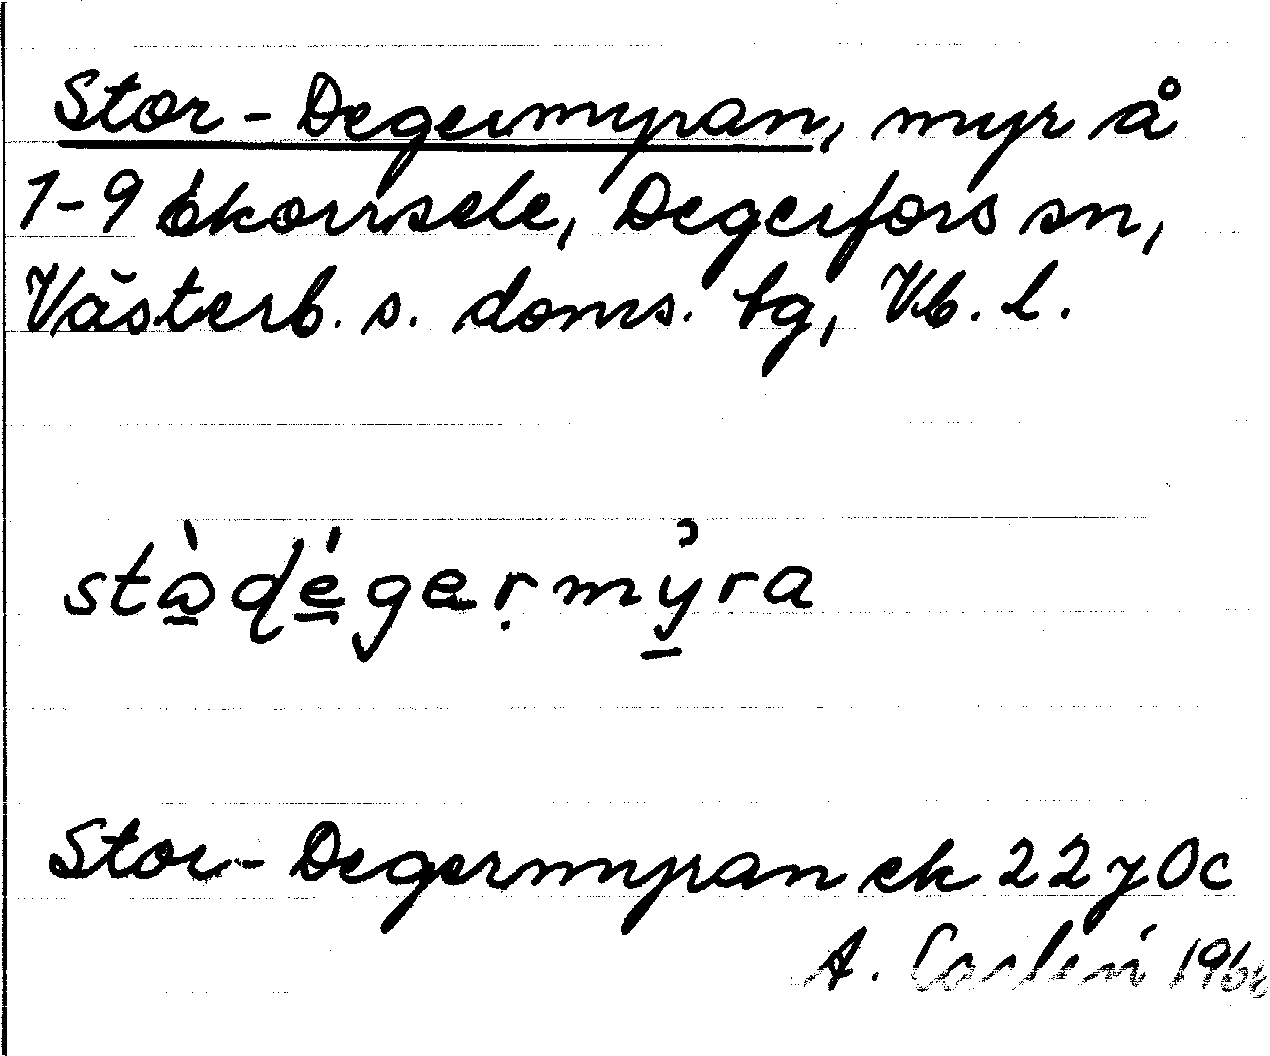 Stor-Degermyran, myr å
1-9 Ekorrsele, Degerfors sn,
Västerb. s. doms. tg, Vb. l.
stòdégermýra
Stor-Degermyran ek 22 y Oc
A. Carlén